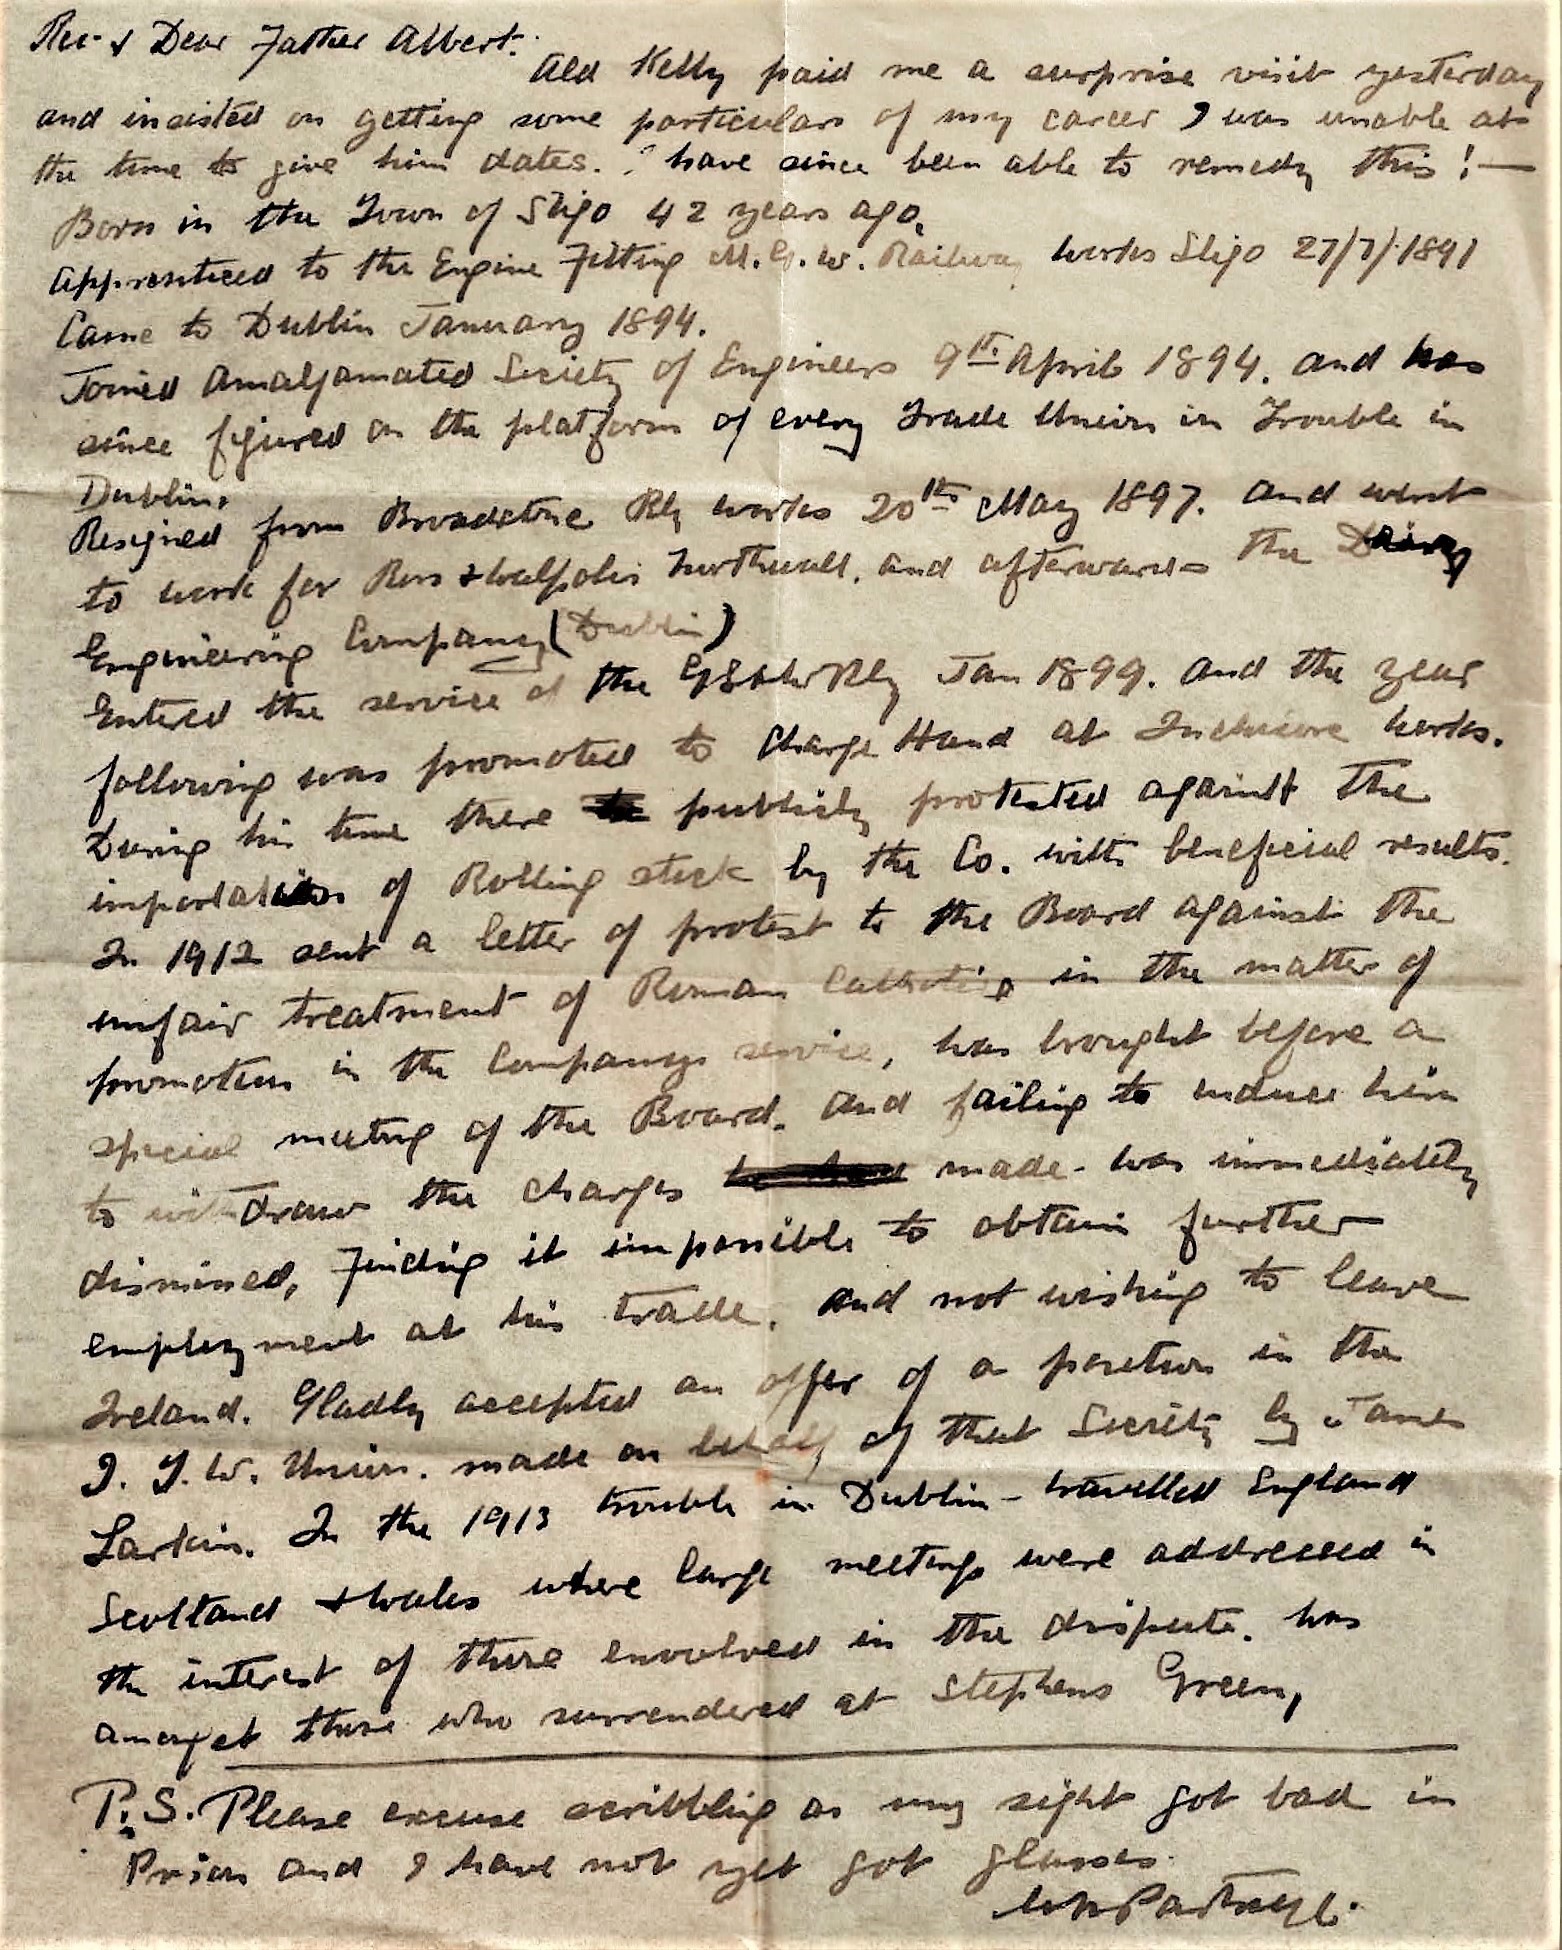 Rev. & Dear Father Albert.
Ald Kelly paid me a surprise visit yesterday
and insisted on getting some particulars of my career I was unable at
the time to give him dates. I have since been able to remedy this! —
Born in the Town of Sligo 42 years ago.
Apprenticed to the Engine Fitting M.G.W. Railway Works Sligo 27/7/1891
Came to Dublin January 1894.
Joined Amalgamated Society of Engineers 9th April 1894. and has
since figured on the platform of every Trade Union in Trouble in
Dublin.
Resigned from Broadstone Rly works 20th May 1897. and went
to work for Ross & Walpoles Northwall. and afterwards the
Engineering Company (Dublin)
Entered the service of the GS&W Rly Jan 1899. and the year
following was promoted to Charge Hand at Inchicore works.
During his time there publicly protested against the
importation of Rolling stock by the Co. with beneficial results.
In 1912 sent a letter of protest to the Board against the
unfair treatment of Roman Catholics in the matter of
promotion in the Companys service, was brought before a
special meeting of the Board. and failing to induce him
to withdraw the charges made - was immediately
dismissed, Finding it impossible to obtain further
employment at his trade. and not wishing to leave
Ireland. Gladly accepted an offer of a position in the
I.T.W. Union. made on behalf of that Society by James
Larkin. In the 1913 trouble in Dublin - travelled England
Scotland & Wales where large meetings were addressed in
the interest of those envolved in the dispute. was
amongst those who surrendered at Stephens Green,
P.S. Please excuse scribbling as my sight got bad in
Prison and I have not yet got glasses.
Wm Partridge.